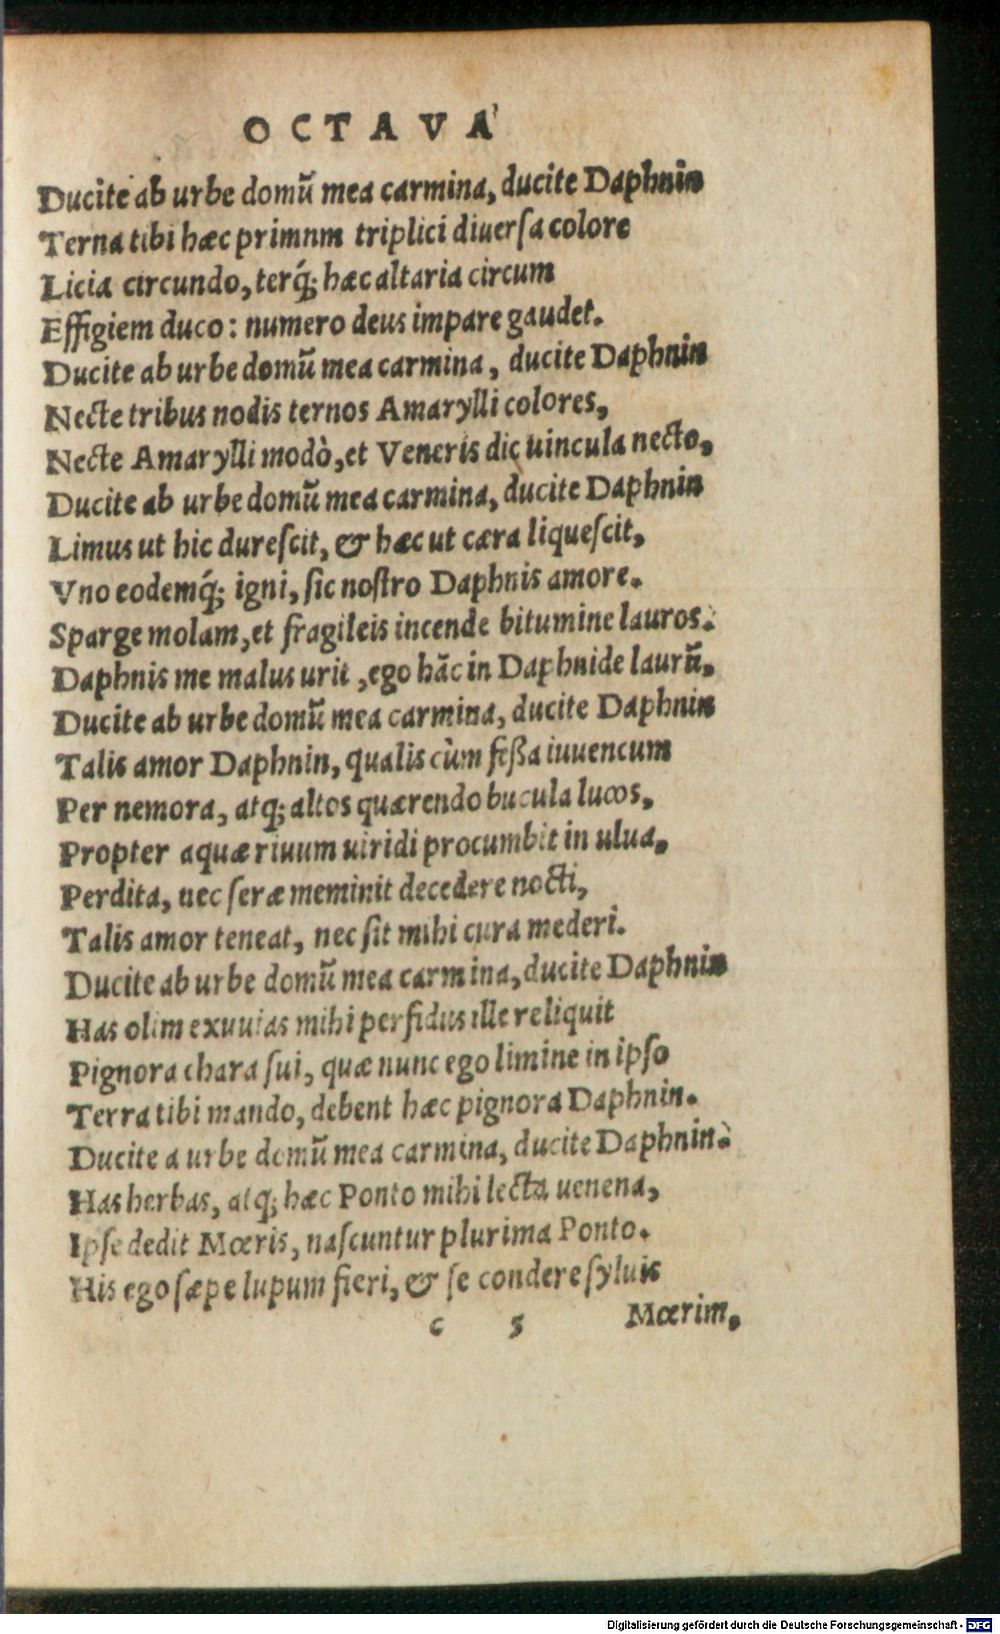 OCTAVA
Ducite ab urbe domū mea carmina, ducite Daphnin
Terna tibi hæc primnm triplici diuerſa colore
Licia circundo, terq́; hæc altaria circum
Effigiem duco: numero deus impare gaudet.
Ducite ab urbe domū mea carmina, ducite Daphnin
Necte tribus nodis ternos Amarylli colores,
Necte Amarylli modò, et Veneris dic uincula necto,
Ducite ab urbe domū mea carmina, ducite Daphnin
Limus ut hic dureſcit, & hæc ut cæra liqueſcit,
Vno eodemq́; igni, ſic noſtro Daphnis amore.
Sparge molam, et fragileis incende bitumine lauros.
Daphnis me malus urit, ego hāc in Daphnide laurū.
Ducite ab urbe domū mea carmina, ducite Daphnin
Talis amor Daphnin, qualis cùm feßa iuuencum
Per nemora, atq; altos quærendo bucula lucos,
Propter aquæ riuum uiridi procumbit in ulua,
Perdita, nec ſeræ meminit decedere nocti,
Talis amor teneat, nec ſit mihi cura mederi.
Ducite ab urbe domū mea carmina, ducite Daphnin
Has olim exuuias mihi perfidus ille reliquit
Pignora chara ſui, quæ nunc ego limine in ipſo
Terra tibi mando, debent hæc pignora Daphnin.
Ducite a urbe domū mea carmina, ducite Daphnin.
Has herbas, atq; hæc Ponto mihi lecta uenena,
Ipſe dedit Mœris, naſcuntur plurima Ponto.
His ego ſæpe lupum fieri, & ſe condere ſyluis
c 5 Mœrim,
Digitalisierung gefördert durch die Deutsche Forschungsgemeinschaft - DFG